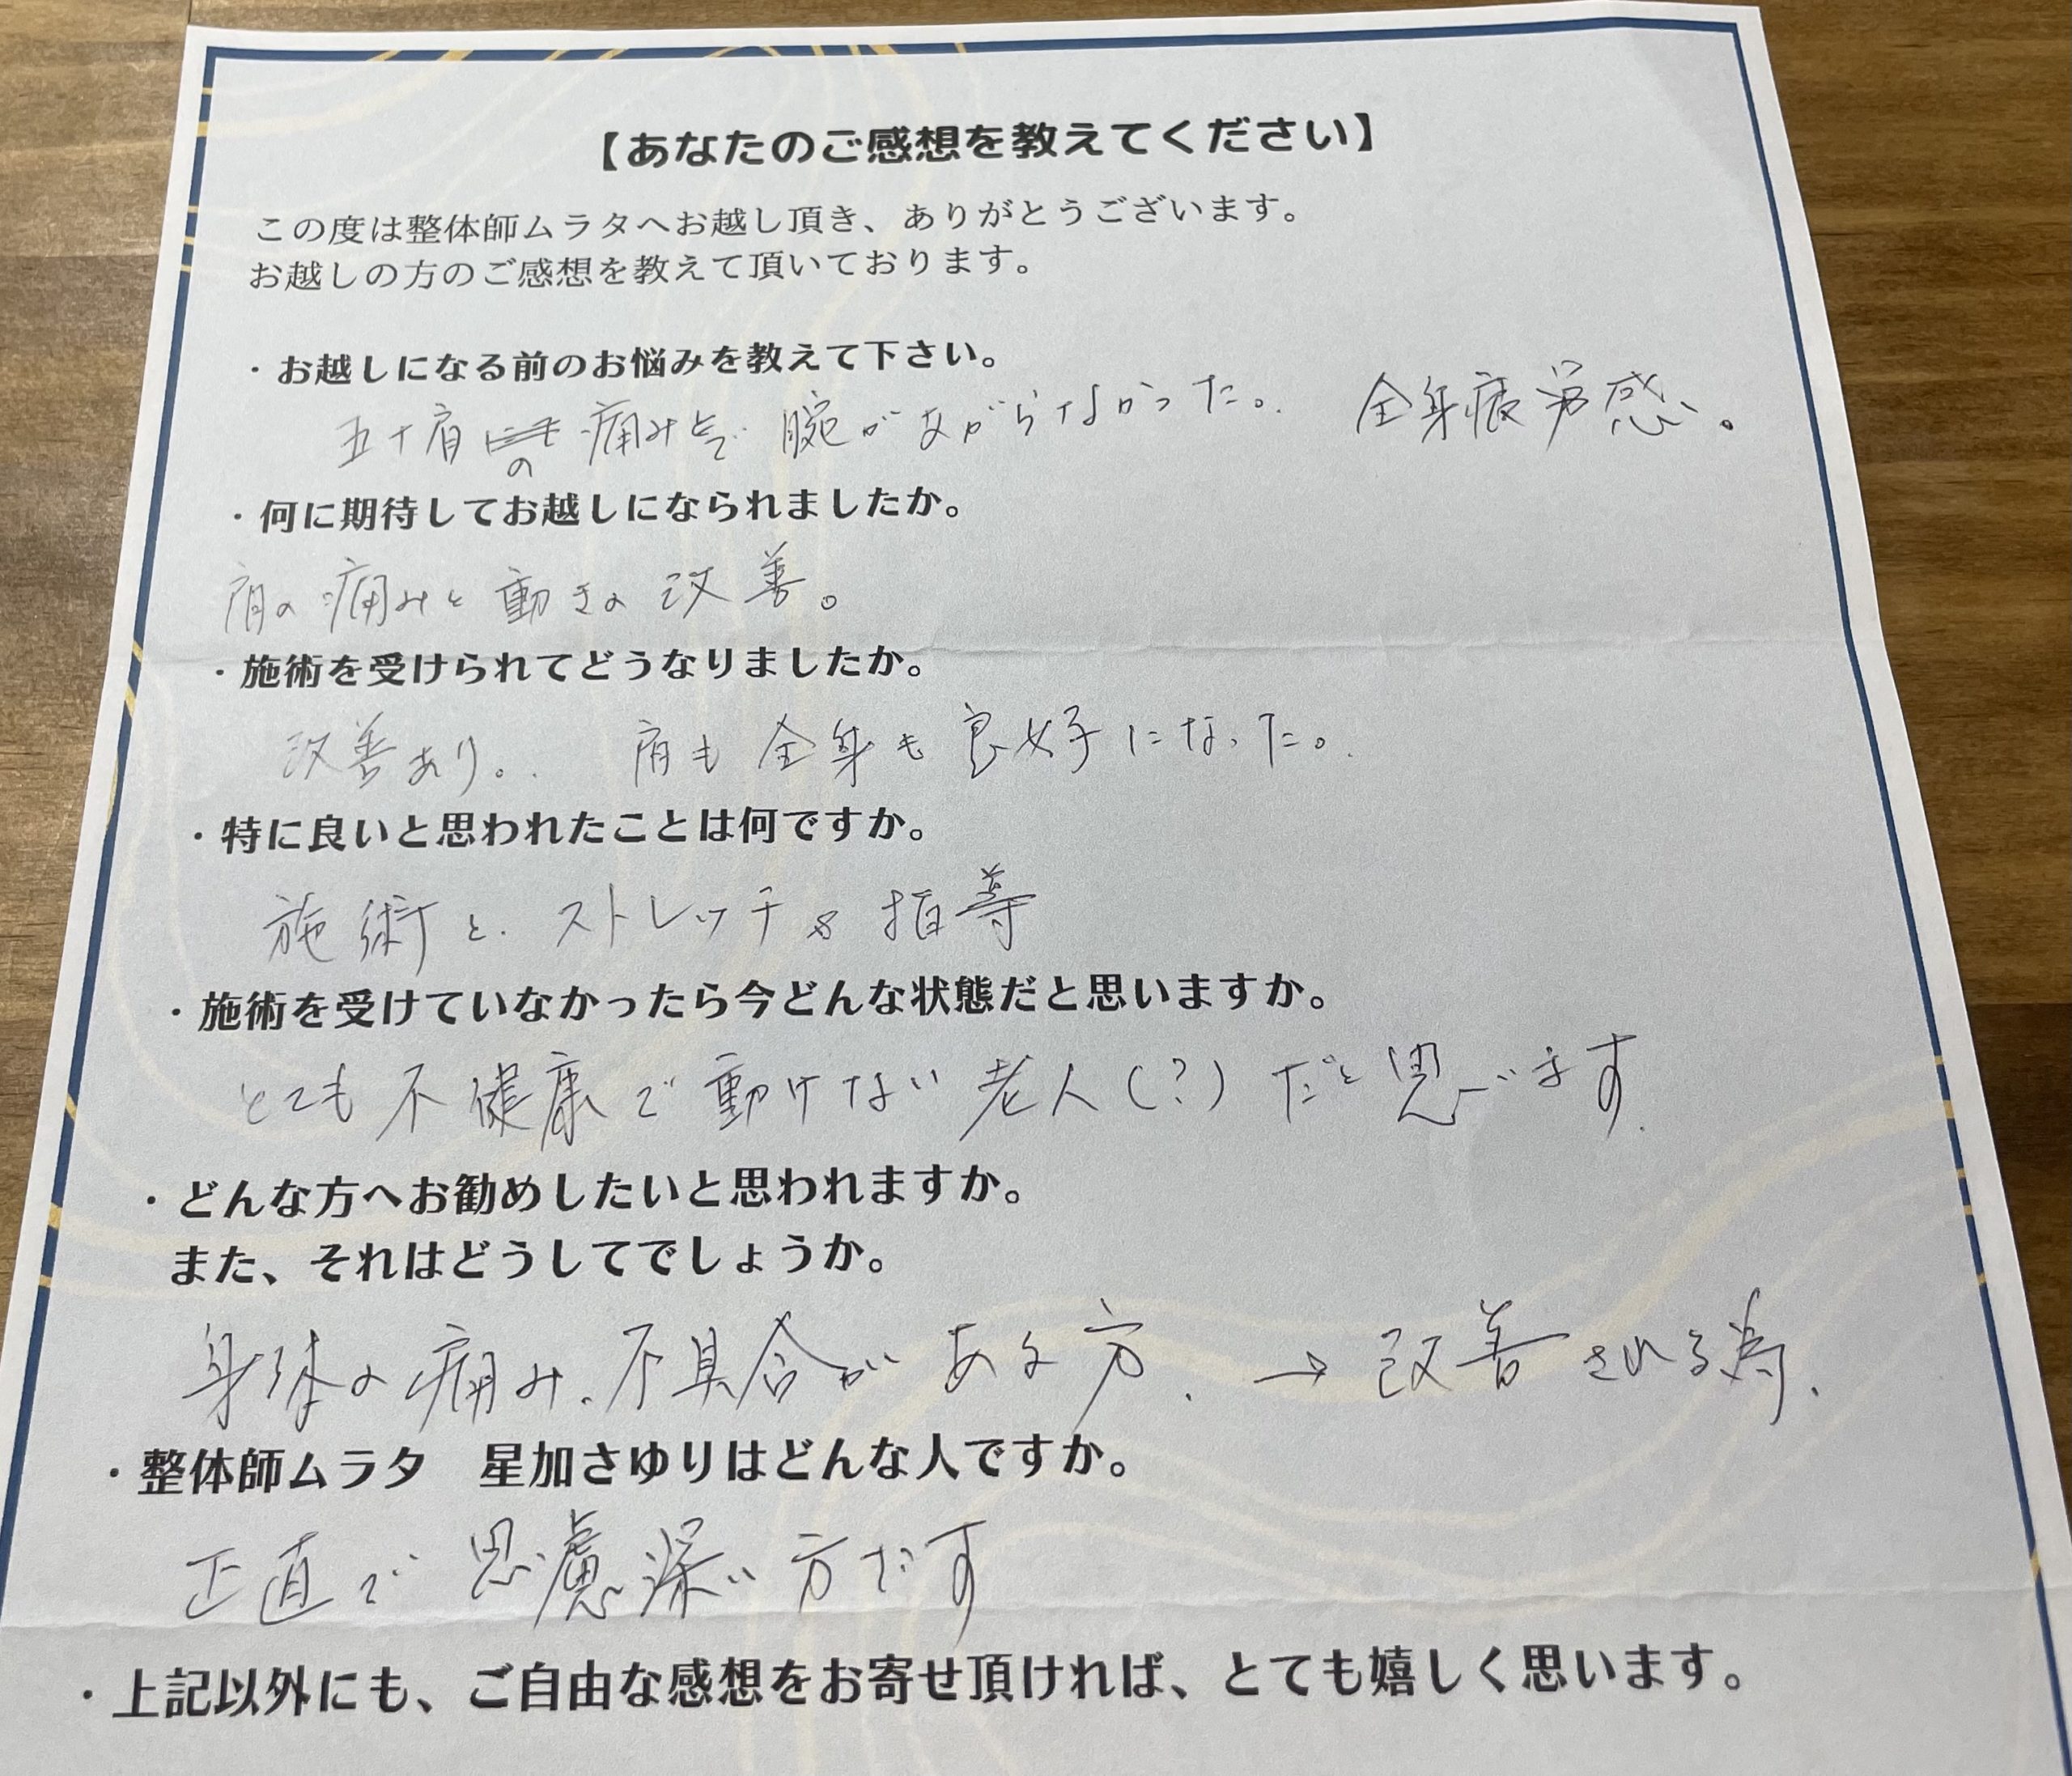 【あなたのご感想を教えてください】
この度は整体師ムラタへお越し頂き、ありがとうございます。
お越しの方のご感想を教えて頂いております。
・お越しになる前のお悩みを教えて下さい。
五十肩の痛みで腕があがらなかった。 全身疲労感。
・何に期待してお越しになられましたか。
肩の痛みと動きの改善。
・施術を受けられてどうなりましたか。
改善あり。 肩も全身も良好になった。
・特に良いと思われたことは何ですか。
施術と、ストレッチ 指導
・施術を受けていなかったら今どんな状態だと思いますか。
とても不健康で動けない老人(?)だと思います
・どんな方へお勧めしたいと思われますか。
また、それはどうしてでしょうか。
身体の痛み、不具合がある方、→改善される為、
・整体師ムラタ　星加さゆりはどんな人ですか。
正直で思慮深い方です
・上記以外にも、ご自由な感想をお寄せ頂ければ、とても嬉しく思います。